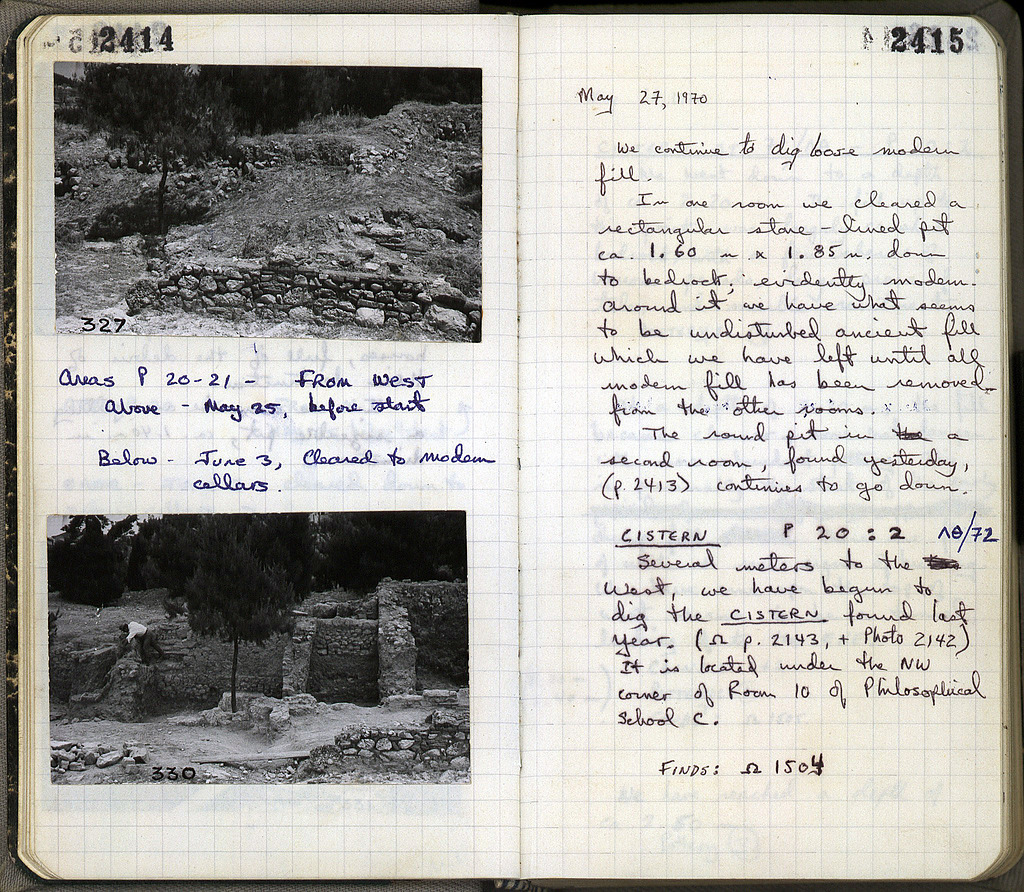 2414
327
Areas P 20-21 - From West
Above - May 25, before start
Below - June 3, Cleared to modern
cellars.
330
2415
May 27, 1970
We continue to dig loose modern
fill.
In one room we cleared a
rectangular stone-lined pit
ca. 1.60 m x 1.85 m. down
to bedrock; evidently modern.
Around it we have what seems
to be undisturbed ancient fill
which we have left until all
modern fill has been removed
from the other rooms.
The round pit in the a
second room, found yesterday,
(p. 2413) continues to go down.
CISTERN P 20:2 ΛΘ/72
Several meters to the
West, we have begun to
dig the CISTERN found last
year. (Ω p. 2143, + Photo 2142)
It is located under the NW
corner of Room 10 of Philosophical
School C.
FINDS: Ω 1504